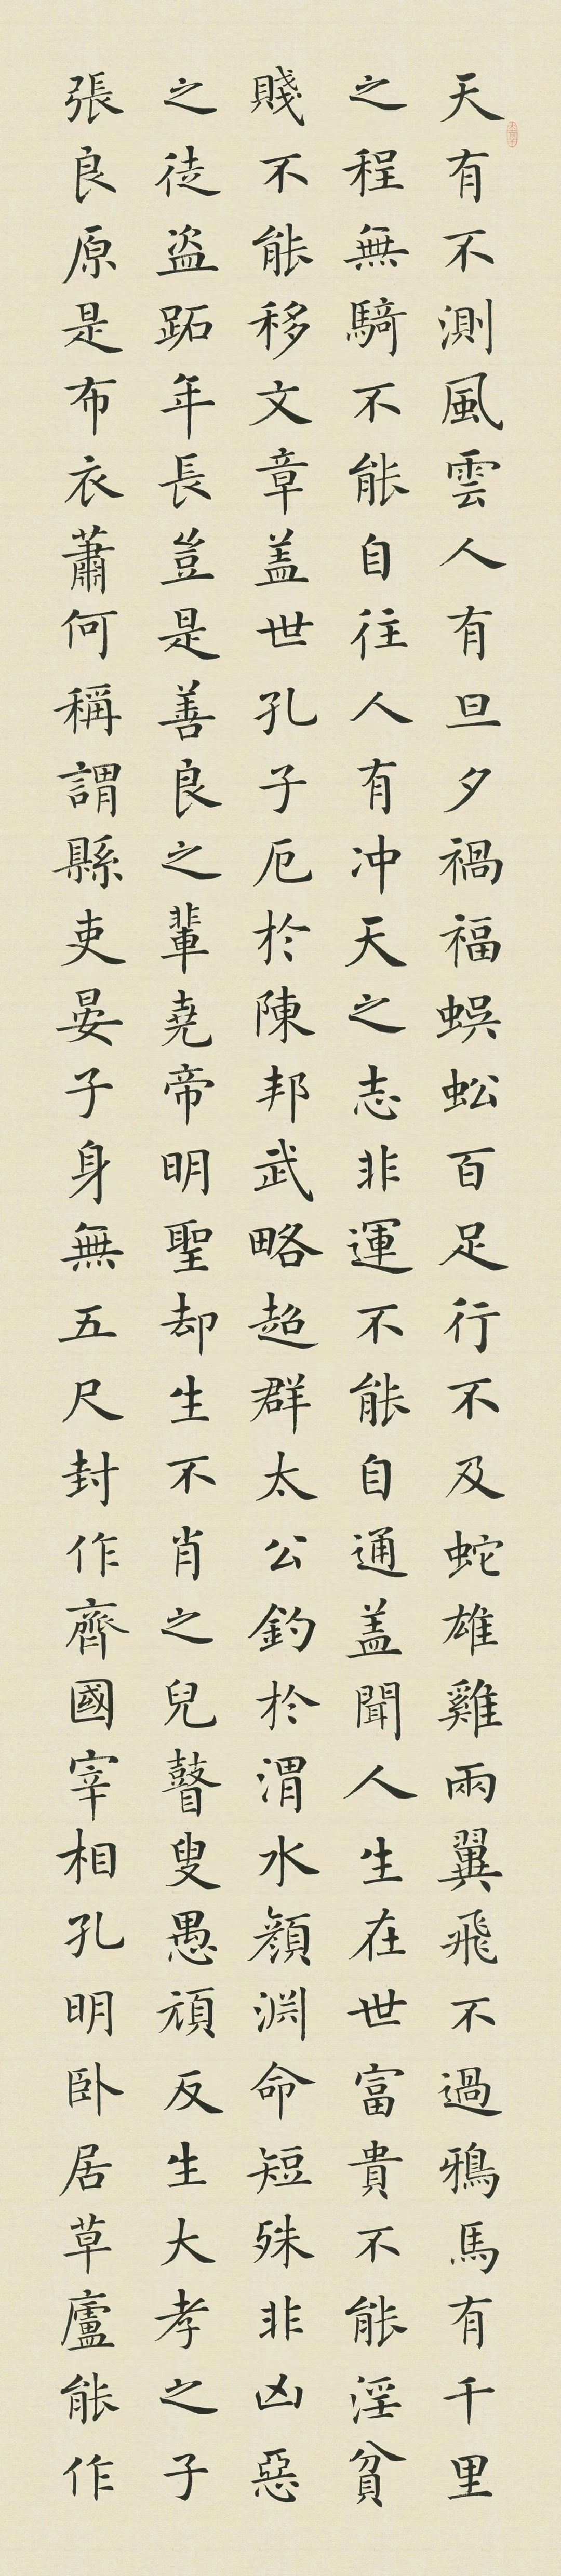 天有不測風雲人有旦夕禍福蜈蚣百足行不及蛇雄雞兩翼飛不過鴉馬有千里
之程無騎不能自往人有冲天之志非運不能自通盖聞人生在世富貴不能淫貧
賤不能移文章盖世孔子厄於陳邦武略超群太公釣於渭水顏淵命短殊非凶惡
之徒盜跖年長豈是善良之輩堯帝明聖却生不肖之兒瞽叟愚頑反生大孝之子
張良原是布衣蕭何稱謂縣吏晏子身無五尺封作齊國宰相孔明卧居草廬能作